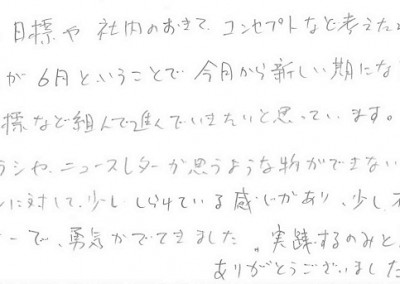 目標や 社内のおきて、コンセプトなど考えた
が 6月ということで 今月から新しい期にな
標など組んで進んでいきたいと思っています。
ラシや、ニュースレターが思うような物ができない
に対して、少し しらけている感じがあり、少し
ーで、勇気がでてきました。実践するのみと
ありがとうございました